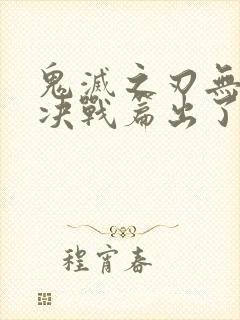 鬼滅之刃無
决戰篇出了
程宵春